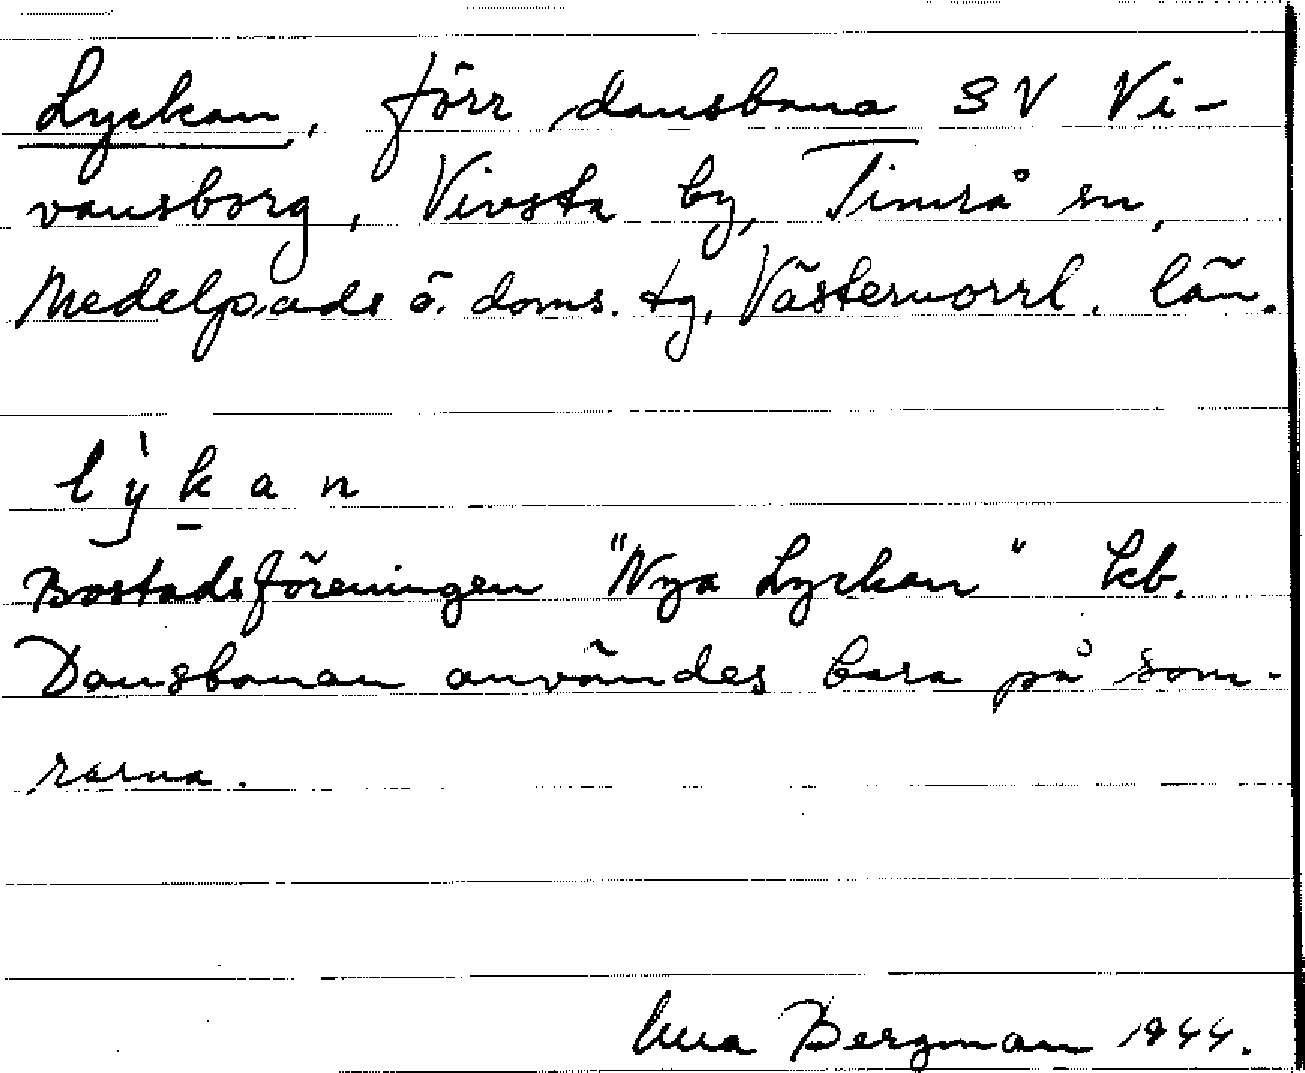 Lyckan, förr dansbana SV Vi-
vansborg, Vivsta by, Timrå sn,
Medelpads ö. doms. tg, Västernorrl. län.
lỳkan
Bostadsföreningen "Nya Lyckan" kb.
Dansbanan användes bara på som-
rarna.
Bergman 1944.